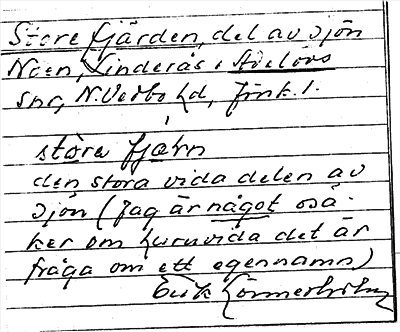 Store fjärden, del av sjön
Noen, Linderås o Adelövs
snr, N. Vedbo hd, Jönk. l.
stòra fjæ̀rn
den stora vida delen av
sjön (Jag är något osä-
ker om huruvida det är
fråga om ett egennamn)
Erik